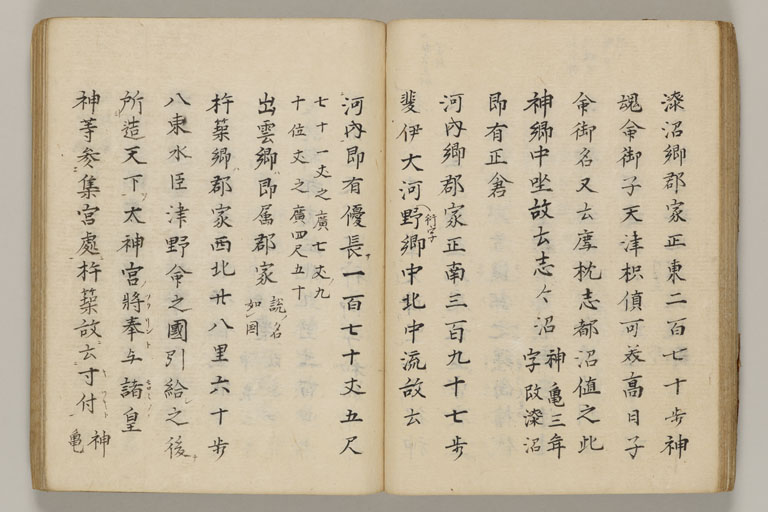 漆沼郷郡家正東二百七十歩神
魂命御子天津枳値可美高日子
命御名又云薦枕志都沼値之此
神郷中坐故云志々沼神亀三年
字改漆沼
即有正倉
河内郷郡家正南三百九十七歩
斐伊大河野郷中北中流故云
衍字
河内即有優長一百七十丈五尺
七十一丈之廣七丈九
十位丈之廣四尺五十
出雲郷即属郡家説名
如国
杵築郷郡家西北廿八里六十歩
八束水臣津野命之國引給之後
所造天下大神宮將奉与諸皇
神等参集宮處杵築故云寸付神
亀